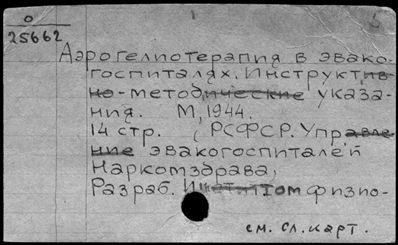 о
25662
Аэрогелиотерапия в эвако-
госпиталях. Инструктив-
но-методические указа-
ния. М, 1944.
14 стр. (РСФСР. Управле-
ние эвакогоспиталей
Наркомздрава)
Разраб. Инст-том физио-
см. сл. карт.